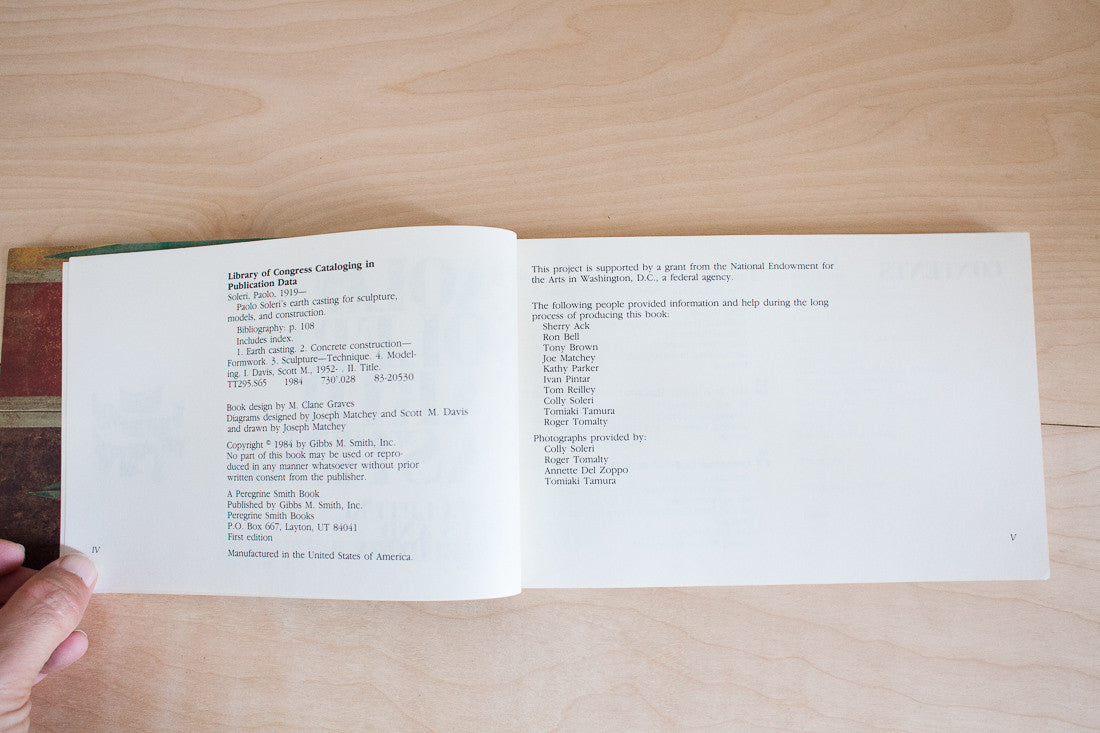 Library of Congress Cataloging in
Publication Data
Soleri, Paolo, 1919—
Paolo Soleri's earth casting for sculpture,
models, and construction.
Bibliography: p. 108
Includes index.
1. Earth casting. 2. Concrete construction—
Formwork. 3. Sculpture—Technique. 4. Model-
ing. I. Davis, Scott M., 1952- . II. Title.
TT295.S65 1984 730'.028 83-20530
Book design by M. Clane Graves
Diagrams designed by Joseph Matchey and Scott M. Davis
and drawn by Joseph Matchey
Copyright © 1984 by Gibbs M. Smith, Inc.
No part of this book may be used or repro-
duced in any manner whatsoever without prior
written consent from the publisher.
A Peregrine Smith Book
Published by Gibbs M. Smith, Inc.
Peregrine Smith Books
P.O. Box 667, Layton, UT 84041
First edition
Manufactured in the United States of America.
IV
This project is supported by a grant from the National Endowment for
the Arts in Washington, D.C., a federal agency.
The following people provided information and help during the long
process of producing this book:
Sherry Ack
Ron Bell
Tony Brown
Joe Matchey
Kathy Parker
Ivan Pintar
Tom Reilley
Colly Soleri
Tomiaki Tamura
Roger Tomalty
Photographs provided by:
Colly Soleri
Roger Tomalty
Annette Del Zoppo
Tomiaki Tamura
V